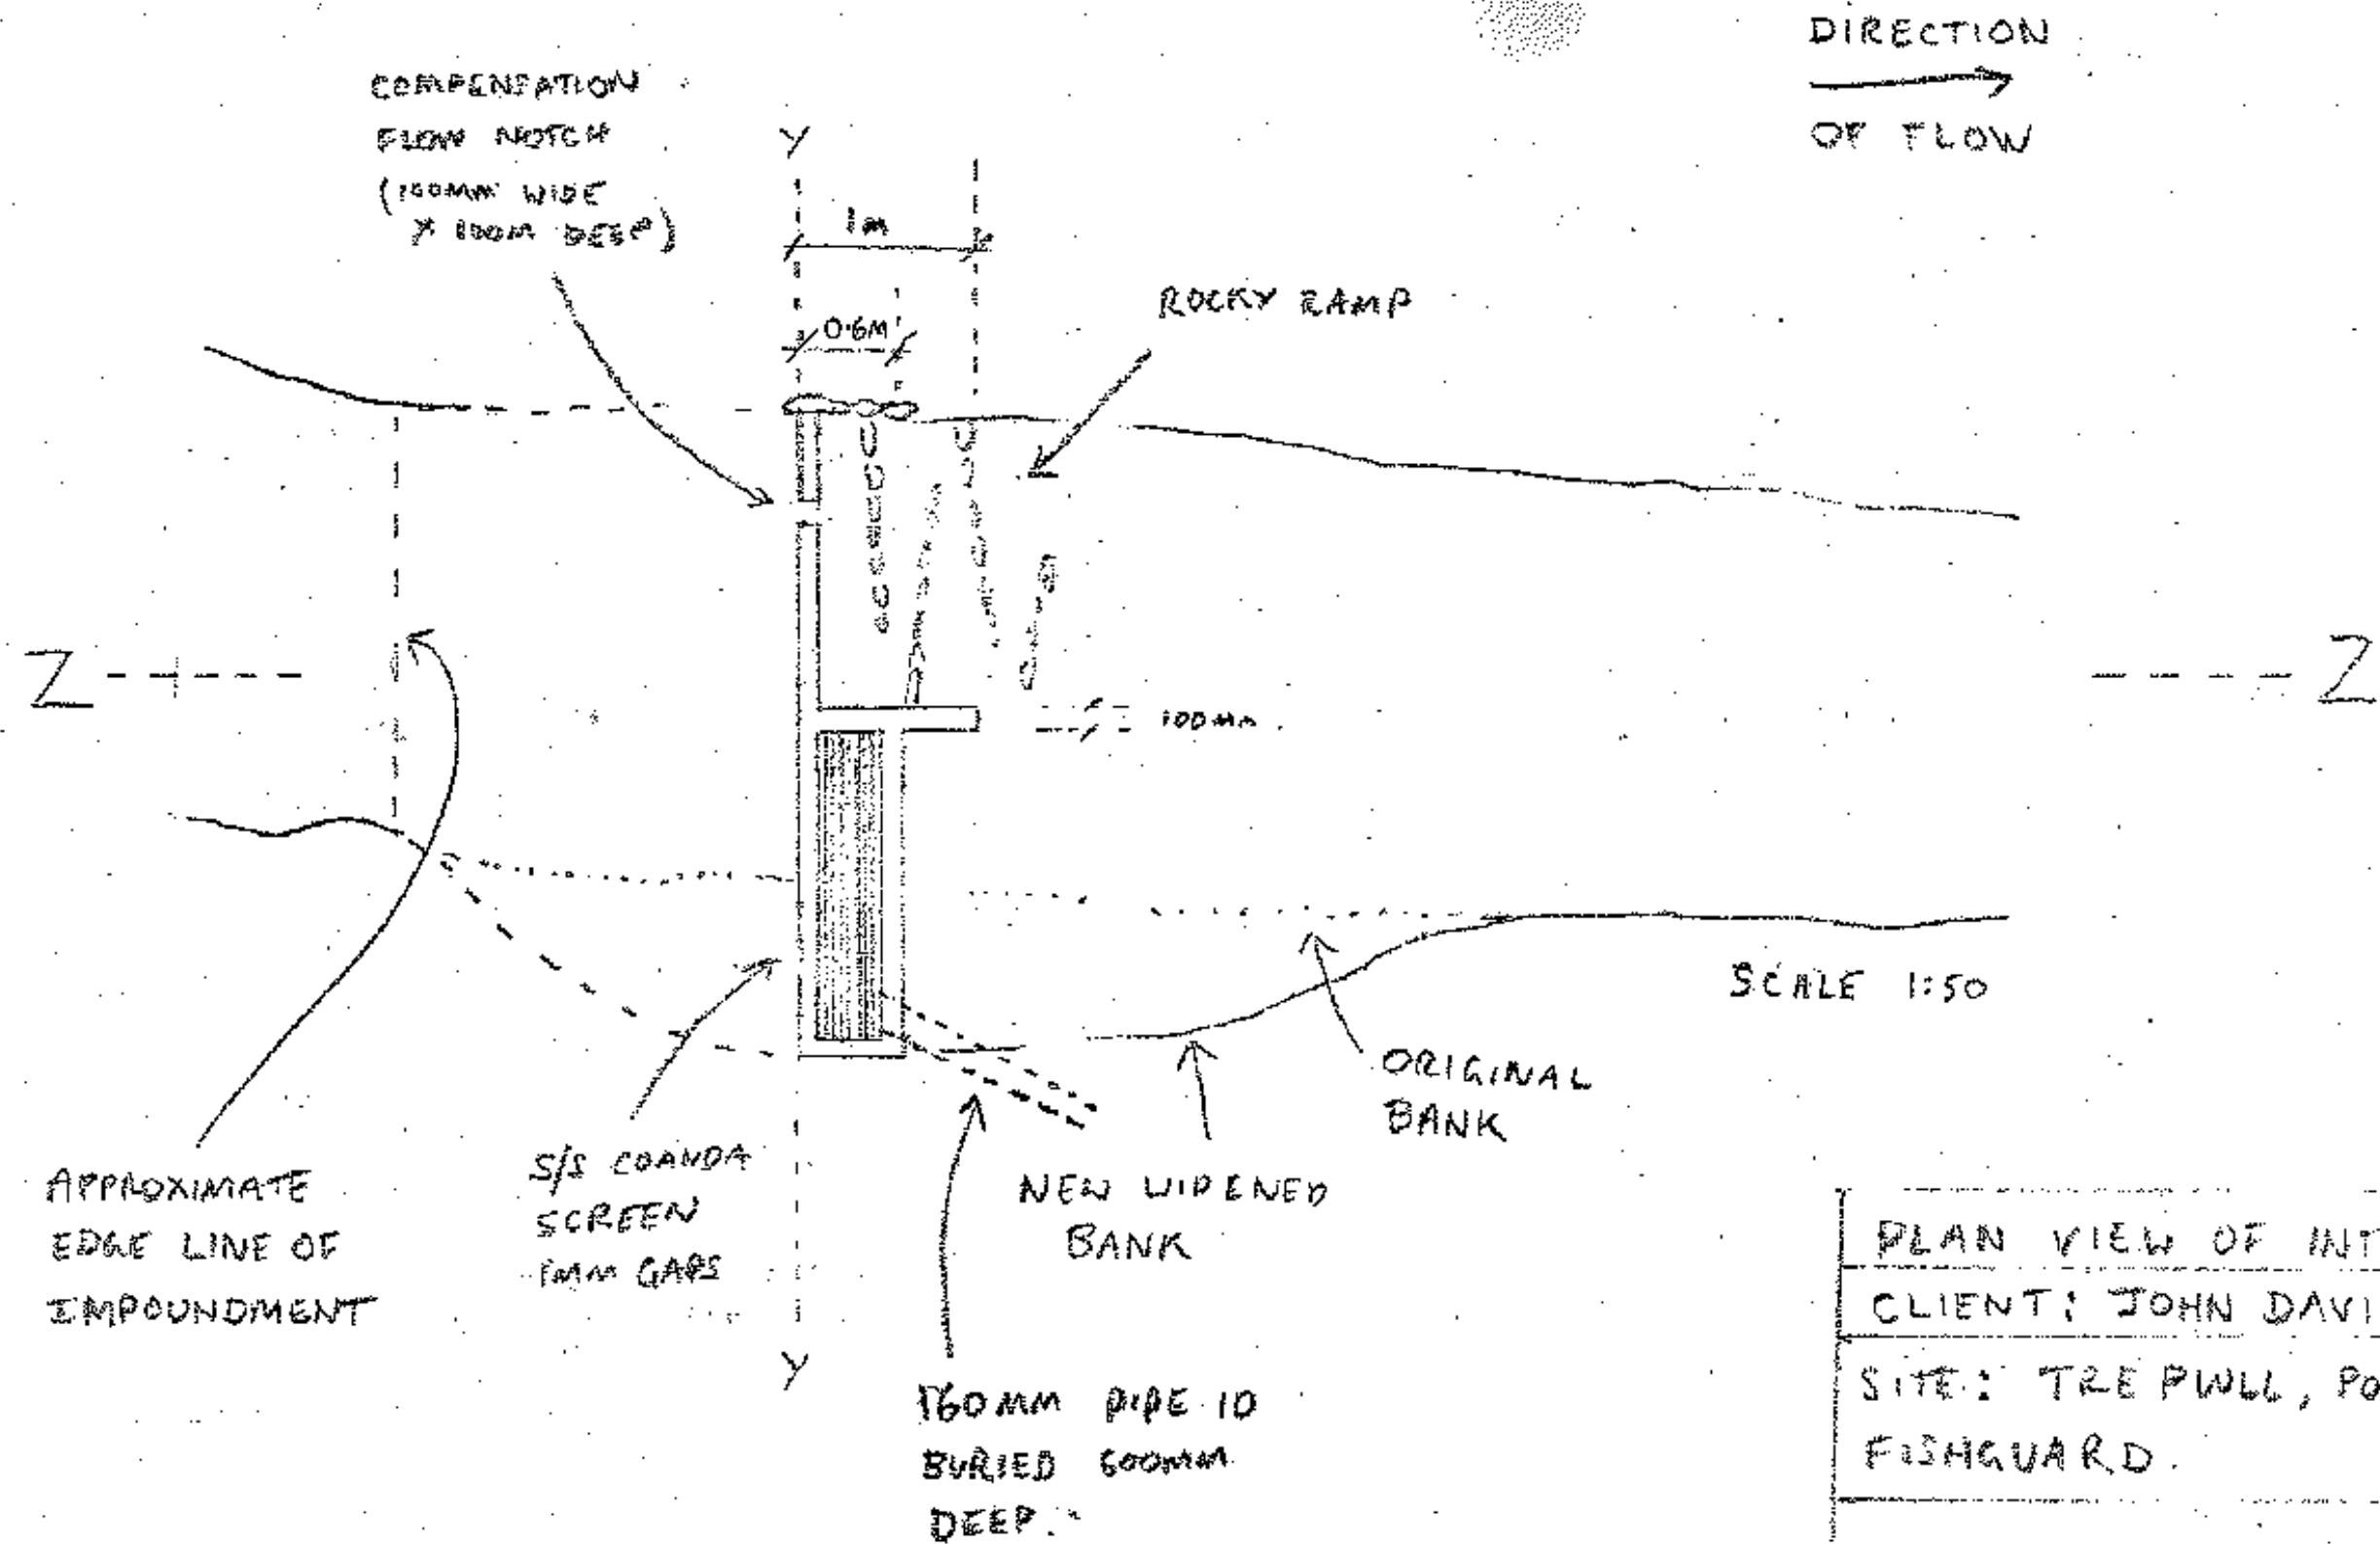 DIRECTION
OF FLOW
COMPENSATION
FLOW NOTCH
(100MM WIDE
X 100M DEEP)
Y
1M
0.6M
ROCKY RAMP
Z
Z
100MM
SCALE 1:50
ORIGINAL
BANK
NEW WIDENED
BANK
APPROXIMATE
EDGE LINE OF
IMPOUNDMENT
S/S COANDA
SCREEN
1MM GAPS
Y
160MM PIPE ID
BURIED 600MM
DEEP.
PLAN VIEW OF INT
CLIENT: JOHN DAVI
SITE: TRE PWLL, PO
FISHGUARD.